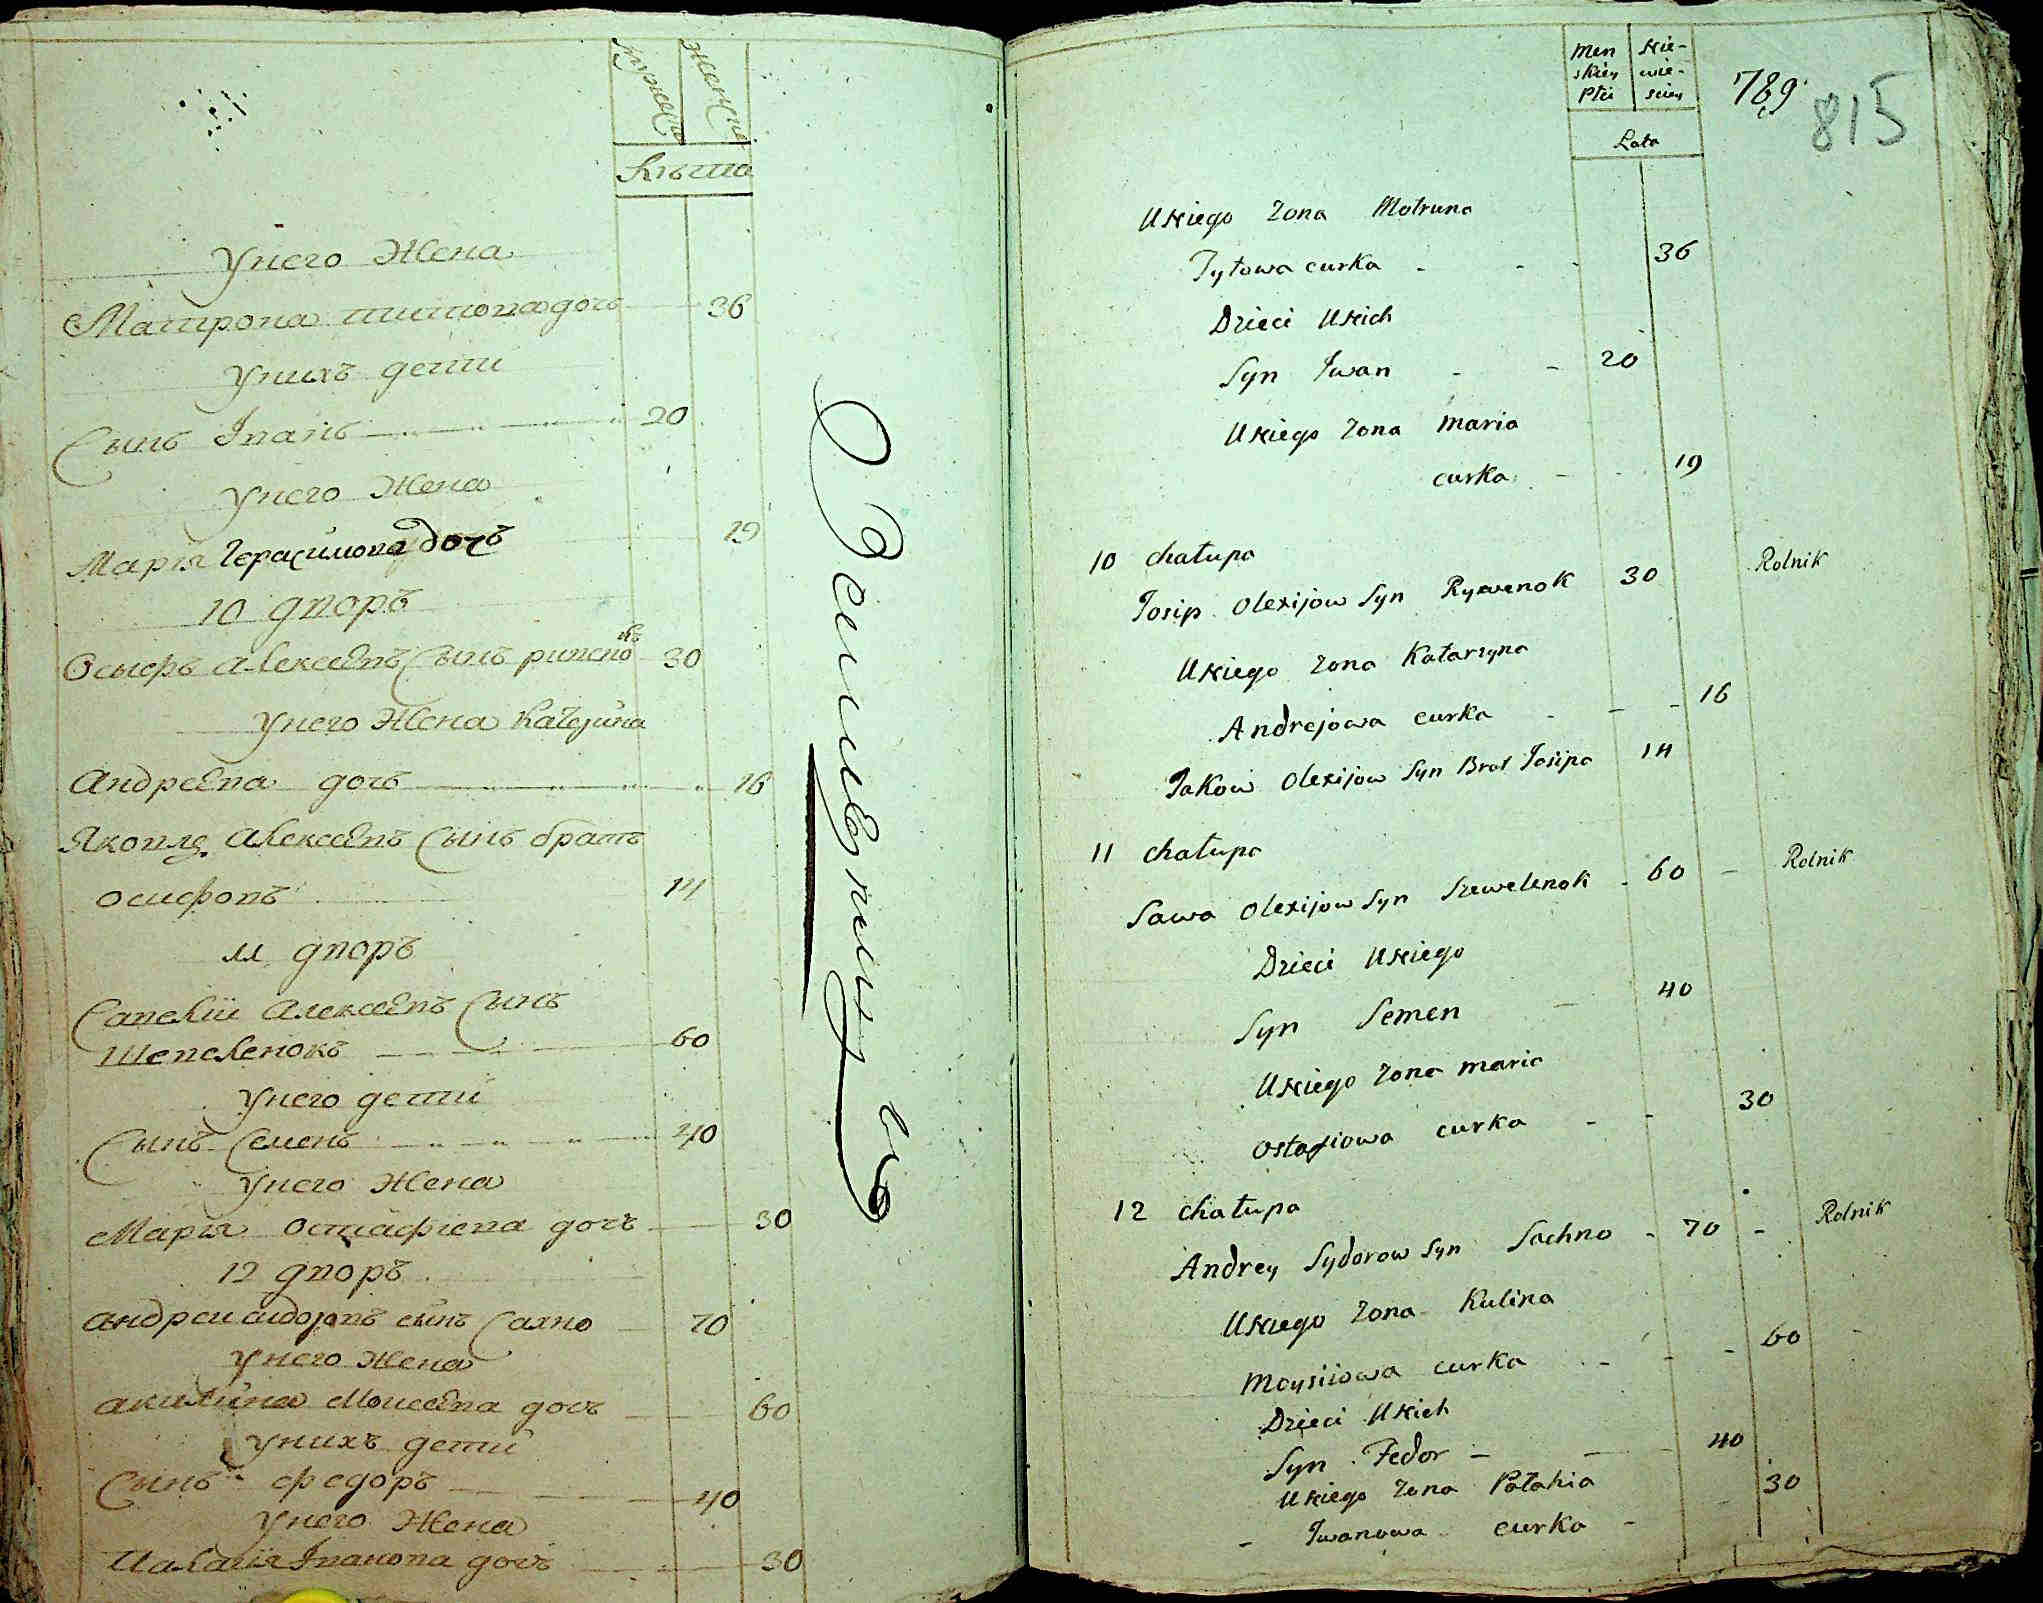 мужеска
женска
лѣта
У него жена
Матрона титова дочь 36
У нихъ дети
Сынъ Іванъ 20
У него жена
Марія Герасимова дочь 19
10 дворъ
Осыфъ Алексеевъ Сынъ ривенокъ 30
У него жена Катерина
Андреева дочь 16
Яковъ Алексеевъ Сынъ братъ
осифовъ 14
11 дворъ
Савелій Алексеевъ Сынъ
Шевеленокъ 60
У него дети
Сынъ Семенъ 40
У него жена
Марія Остафиева дочь 30
12 дворъ
андреи сидоровъ сынъ Сахно 70
У него жена
акилина Моисеева дочь 60
У нихъ дети
Сынъ федоръ 40
У него жена
Палагія Іванова дочь 30
Men
skiey
Płci
Nie-
wie-
sciey
789
815
Lata
U Niego Zona Motruna
Tytowa curka - - - 36
Dzieci U Nich
Syn Iwan - - 20
U Niego Zona Maria
curka - - 19
10 chałupa
Josip Olexijow Syn Rywenok 30 Rolnik
U Niego Zona Katarzyna
Andrejowa curka - - - 16
Jakow Olexijow Syn Brat Josipa 14
11 chałupa
Sawa Olexijow Syn Szewelenok - 60 - Rolnik
Dzieci U Niego
Syn Semen - 40
U Niego Zona Maria
Ostafiowa curka - - 30
12 chałupa
Andrey Sydorow Syn Sachno - 70 - Rolnik
U Niego Zona Kulina
Moysiiowa curka - - - 60
Dzieci U Nich
Syn Fedor - - 40
U Niego Zona Pałahia 30
- Iwanowa curka -